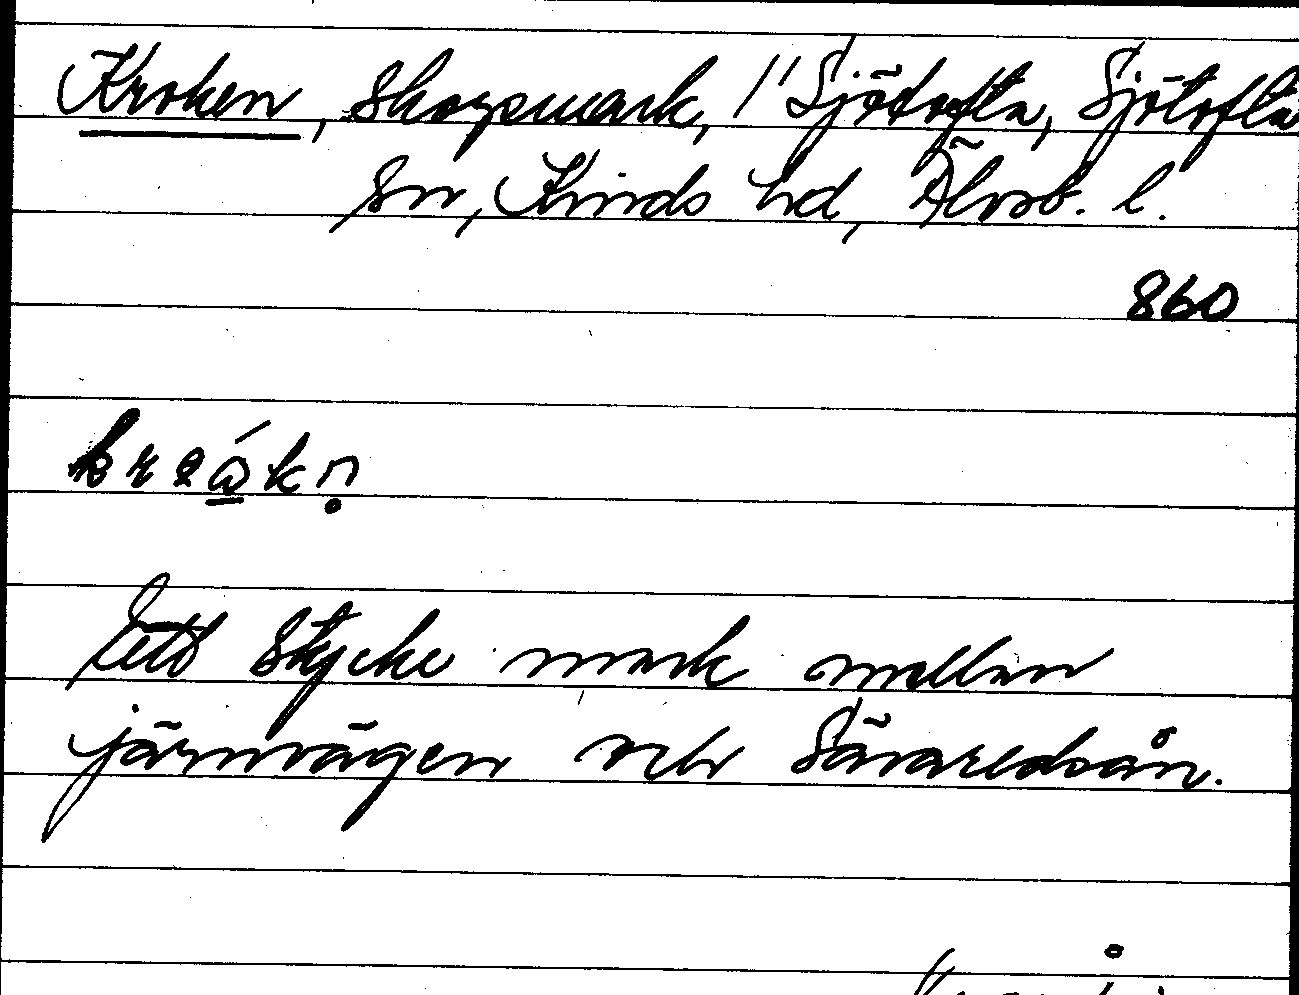 Kroken, skogsmark, 1" Sjötofta, Sjötofta
sn, Kinds hd, Älvsb. l.
860
Ett stycke mark mellan
järnvägen och Sävaredsån.